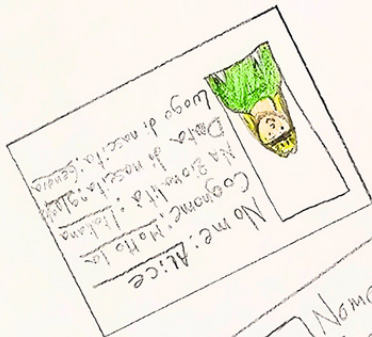 Nome: Alice
Cognome:
Nazionalità: Italiana
Data di nascita:
Luogo di nascita: Genova
Nome